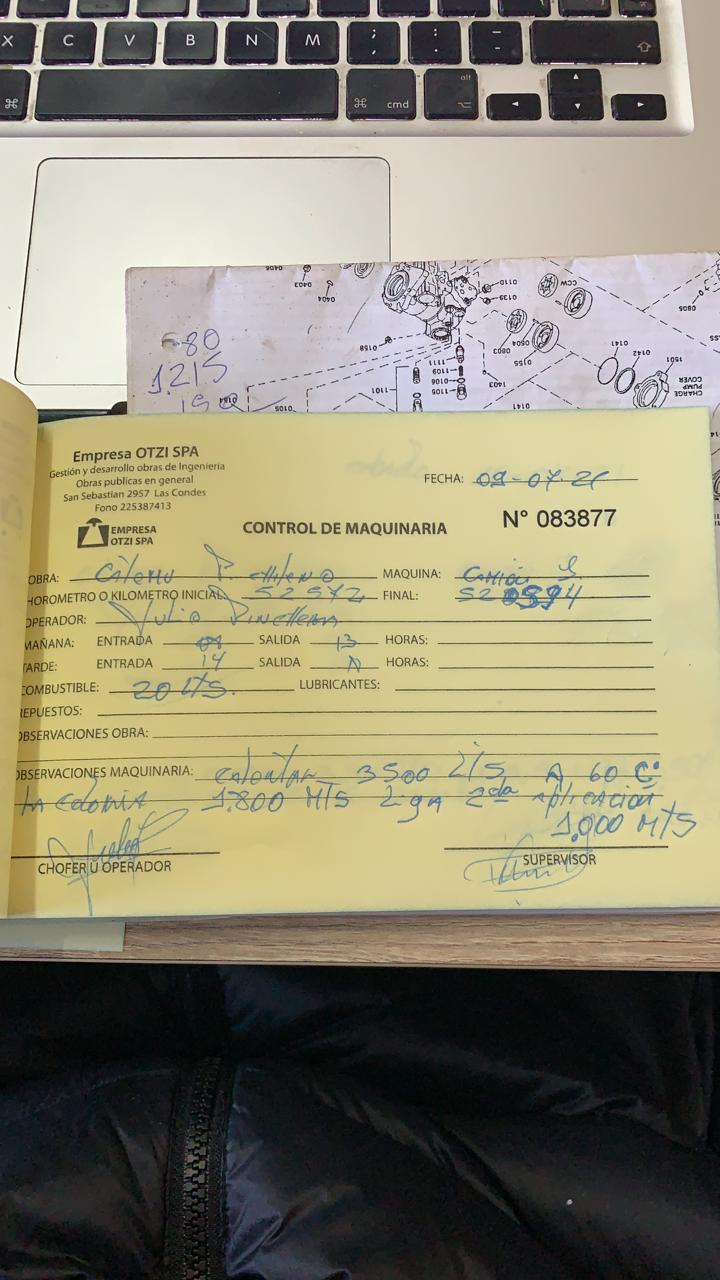 X C V B N M ; : , -
alt
⌘ ⌘ cmd ⌥ ◄ ▲ ▼ ►
0406 0403 0404 0110 0139 CCW 0805
80
1.215
0158 0803 0804 0155 0141 0142 1501
CHARGE PUMP COVER
1111 1109 0106 1105 1403
1101
0184 0105 0141
Empresa OTZI SPA
Gestión y desarrollo obras de Ingeniería
Obras publicas en general
San Sebastían 2957 Las Condes
Fono 225387413
EMPRESA
OTZI SPA
FECHA: 09-07-21
CONTROL DE MAQUINARIA N° 083877
OBRA: MAQUINA: Camión
HOROMETRO O KILOMETRO INICIAL: 52572 FINAL:
OPERADOR: Julio
MAÑANA: ENTRADA 08 SALIDA 13 HORAS:
TARDE: ENTRADA 14 SALIDA HORAS:
COMBUSTIBLE: 20 LTS. LUBRICANTES:
REPUESTOS:
OBSERVACIONES OBRA:
OBSERVACIONES MAQUINARIA: Calentar 3500 LTS A 60 C°
La Colonia 1.800 MTS Liga 2da aplicación
1.000 MTS
CHOFER U OPERADOR SUPERVISOR